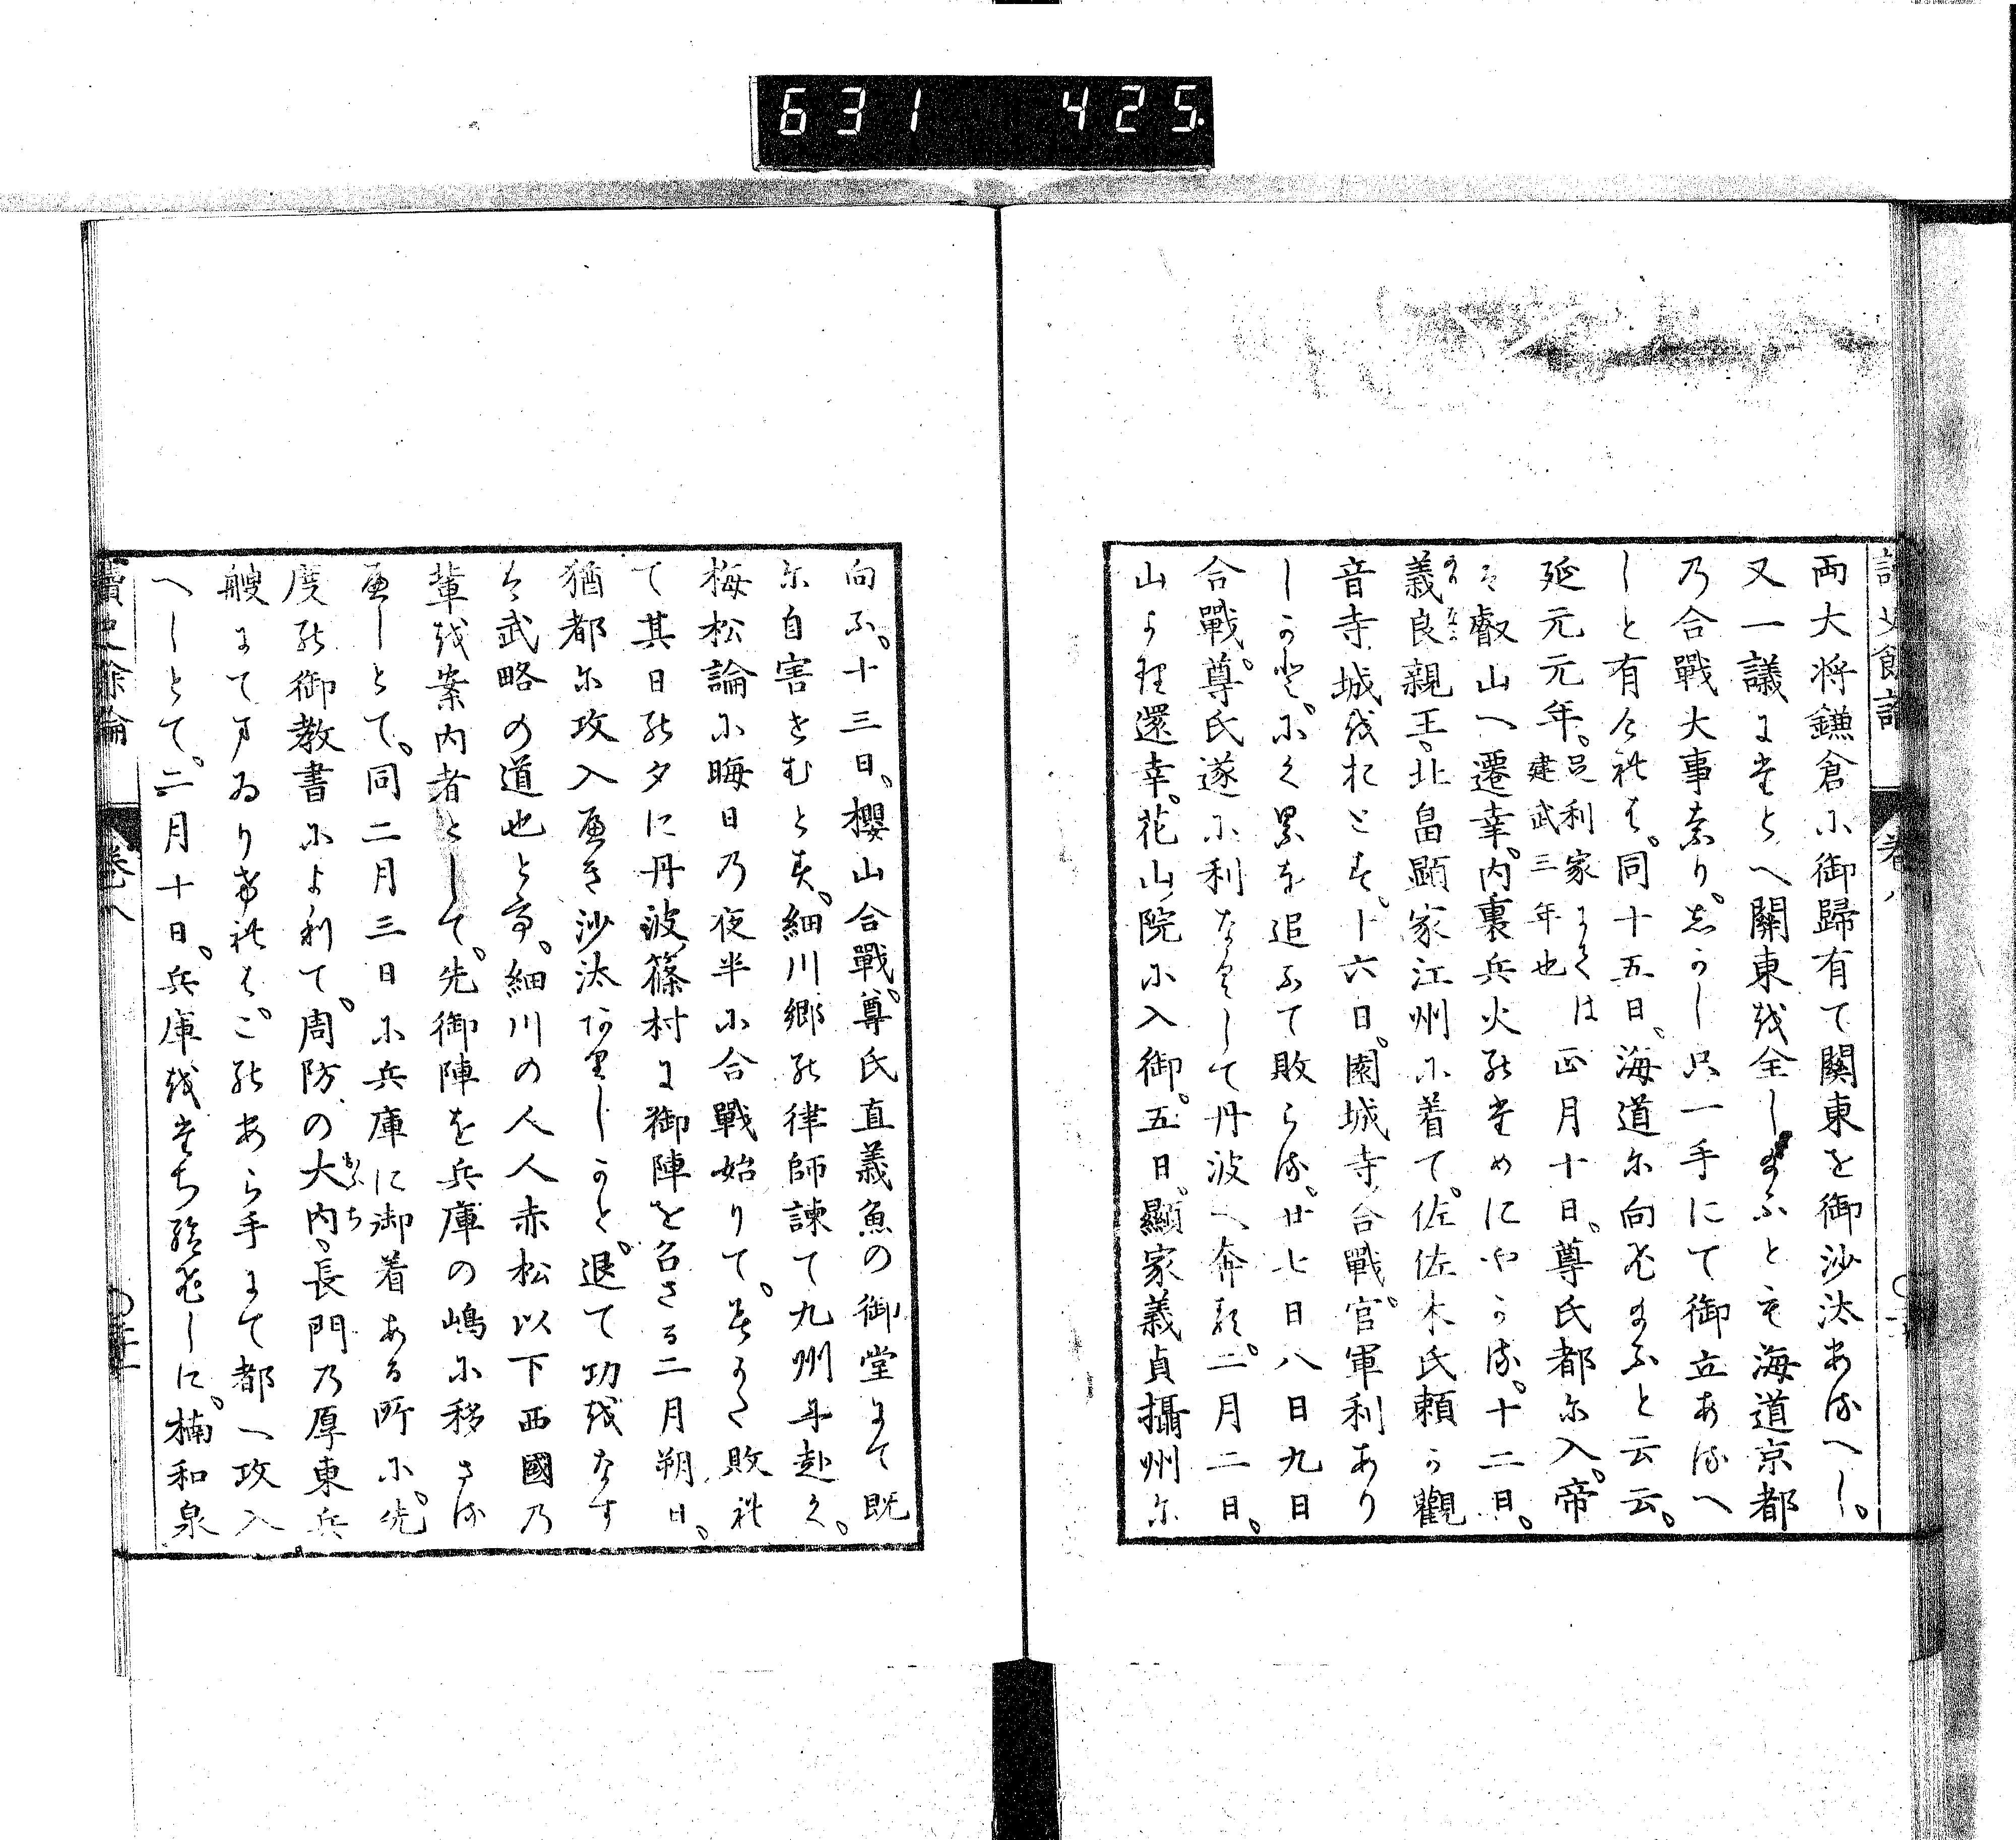 631 425
讀史餘論 卷八
両大将鎌倉に御歸有て關東を御沙汰あるへし。
又一議にたとへ關東を全したまふとも海道京都
乃合戰大事なり。しかし只一手にて御立あるへ
しと有けれは。同十五日。海道に向たまふと云云。
延元元年。足利家にては建武三年也 正月十日。尊氏都に入。帝
は叡山へ遷幸。内裏兵火のためにやかる。十二日。
義良親王、北畠顯家江州に着て。佐佐木氏頼か觀
音寺城をおとす。十六日。園城寺合戰。官軍利あり
しかと。にく累を追ふて敗らる。廿七日八日九日
合戰。尊氏遂に利なくして丹波へ奔る。二月二日。
山より還幸。花山院に入御。五日。顯家義貞攝州に
向ふ。十三日。櫻山合戰。尊氏直義魚の御堂にて既
に自害せむとす。細川郷の律師諫て九州に赴く。
梅松論に晦日乃夜半に合戰始りて。みかた敗れ
て其日の夕に丹波、篠村に御陣を召さる二月朔日。
猶都に攻入へき沙汰ありしかと。退て功をなす
は武略の道也とて。細川の人人赤松以下西國乃
輩を案内者として。先御陣を兵庫の嶋に移さる
へしとて。同二月三日に兵庫に御着ある所に。先
度の御教書によりて。周防の大内、長門乃厚東兵
艘にてまゐりけれは。このあら手にて都へ攻入
へしとて。二月十日。兵庫をたち給ひしに。楠和泉
讀史餘論 卷八